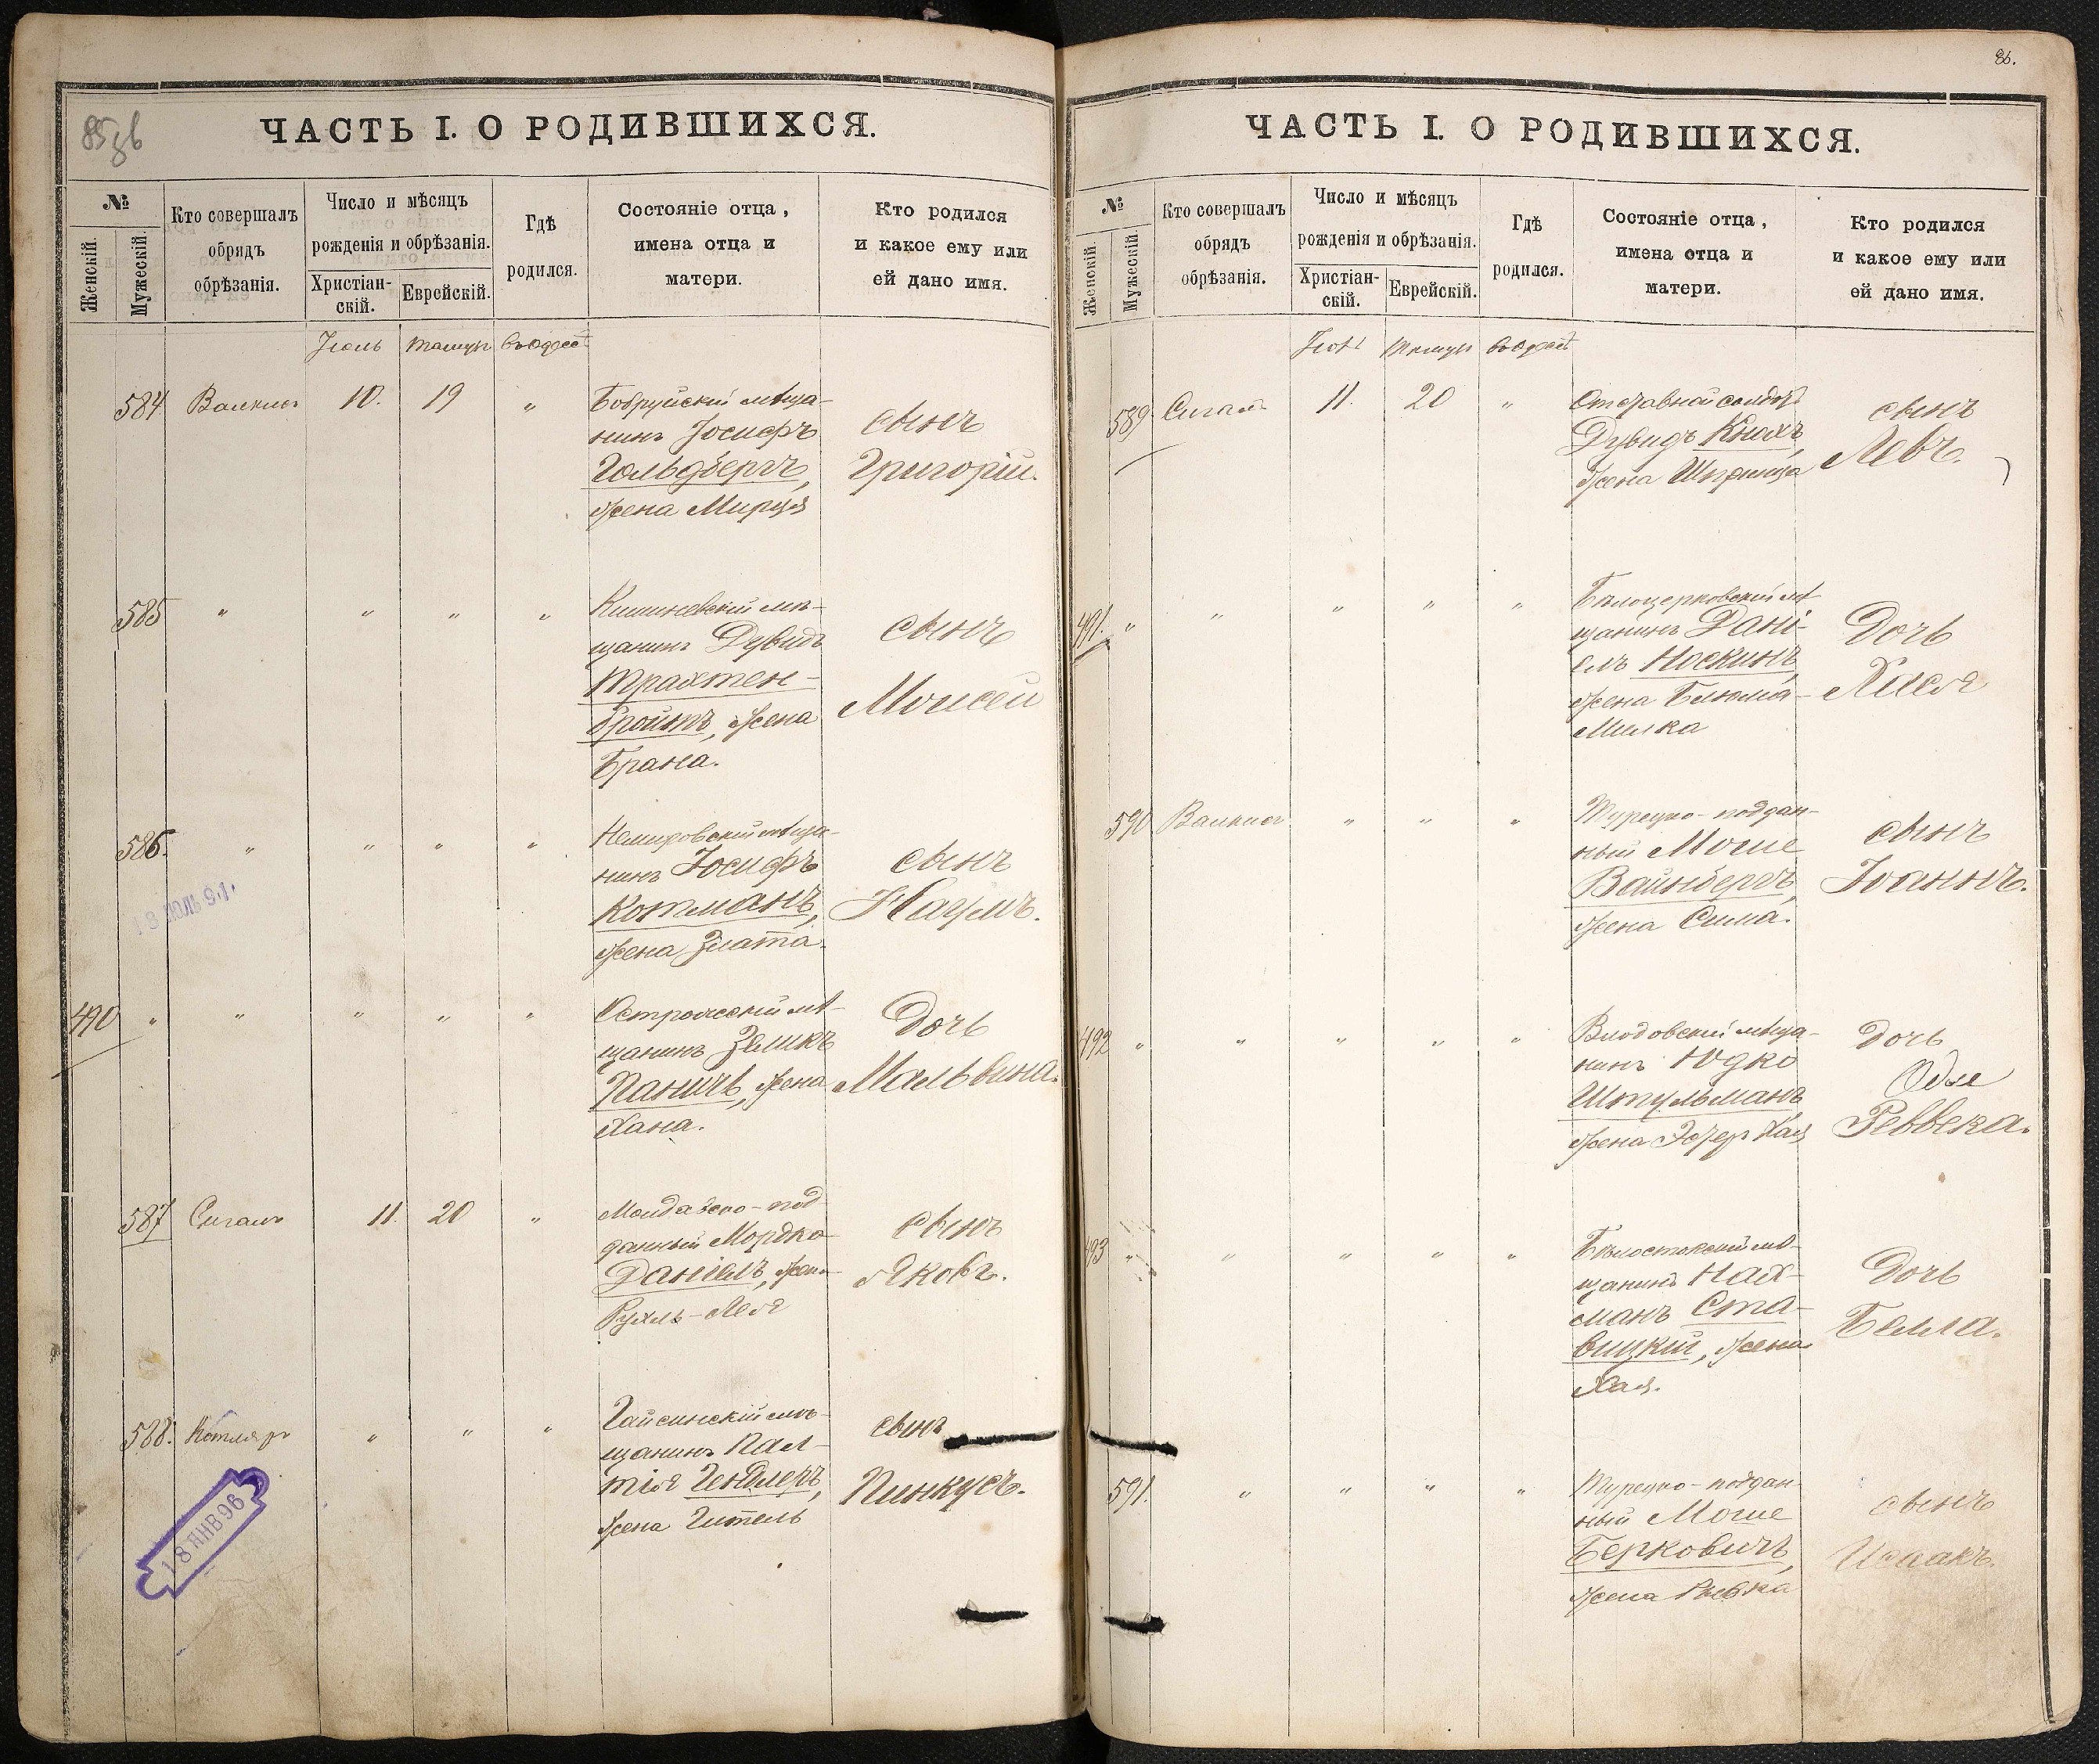 85 зв
ЧАСТЬ I. О РОДИВШИХСЯ.
№
Женскій.
Мужескій.
Кто совершалъ
обрядъ
обрѣзанія.
Число и мѣсяцъ
рожденія и обрѣзанія.
Христіан-
скій.
Еврейскій.
Гдѣ
родился.
Состояніе отца,
имена отца и
матери.
Кто родился
и какое ему или
ей дано имя.
Іюль
584
10.
19
"
Бобруйскій мѣща-
нинъ Іосифъ
Гольдбергъ,
жена Мирця
сынъ
Григорій.
585
"
"
"
"
Кишиневскій мѣ-
щанинъ Дувидъ
Трахтен-
бройтъ, жена
Брана.
сынъ
Моисей
586.
"
"
"
"
Немировскій мѣща-
нинъ Іосифъ
Котманъ,
жена Злата.
сынъ
Наумъ.
13 ІЮЛЬ 91.
490
"
"
"
"
"
мѣ-
щанинъ Зеликъ
Паничъ, жена
Хана.
Дочь
Мальвина.
587
Сигалъ
11.
20
"
Молдавско-под-
данный Мордко
Даніелъ, жена
Рухль-Лея
сынъ
Яковъ.
588.
Котляръ
"
"
"
Гайсинскій мѣ-
щанинъ Пал-
тія Гендлеръ,
жена Гитель
сынъ
Пинкусъ.
18 ЯНВ 96
86.
ЧАСТЬ I. О РОДИВШИХСЯ.
№
Женскій.
Мужескій.
Кто совершалъ
обрядъ
обрѣзанія.
Число и мѣсяцъ
рожденія и обрѣзанія.
Христіан-
скій.
Еврейскій.
Гдѣ
родился.
Состояніе отца,
имена отца и
матери.
Кто родился
и какое ему или
ей дано имя.
589
Сигалъ
11.
20
"
Отставной солдатъ
Дувидъ Кнохъ,
жена Шпринца
сынъ
Левъ.
491.
"
"
"
"
"
Бѣлоцерковскій мѣ-
щанинъ Дані-
елъ Носкинъ,
жена Блюма-
Милка
Дочь
Хася
590
"
"
"
Турецко-поддан-
ный Моше
Вайнбергъ,
жена Сима.
сынъ
Іоаннъ.
492
"
"
"
"
"
Влодовскій мѣща-
нинъ Юдко
Штульманъ
жена Эстеръ Хая
дочь
Ревекка.
493
"
"
"
"
"
Бѣлостокскій мѣ-
щанинъ Нах-
манъ Ста-
вицкій, жена
Хая.
Дочь
Белла.
591.
"
"
"
"
Турецко-поддан-
ный Моше
Берковичъ,
жена Ривка
сынъ
Исаакъ.